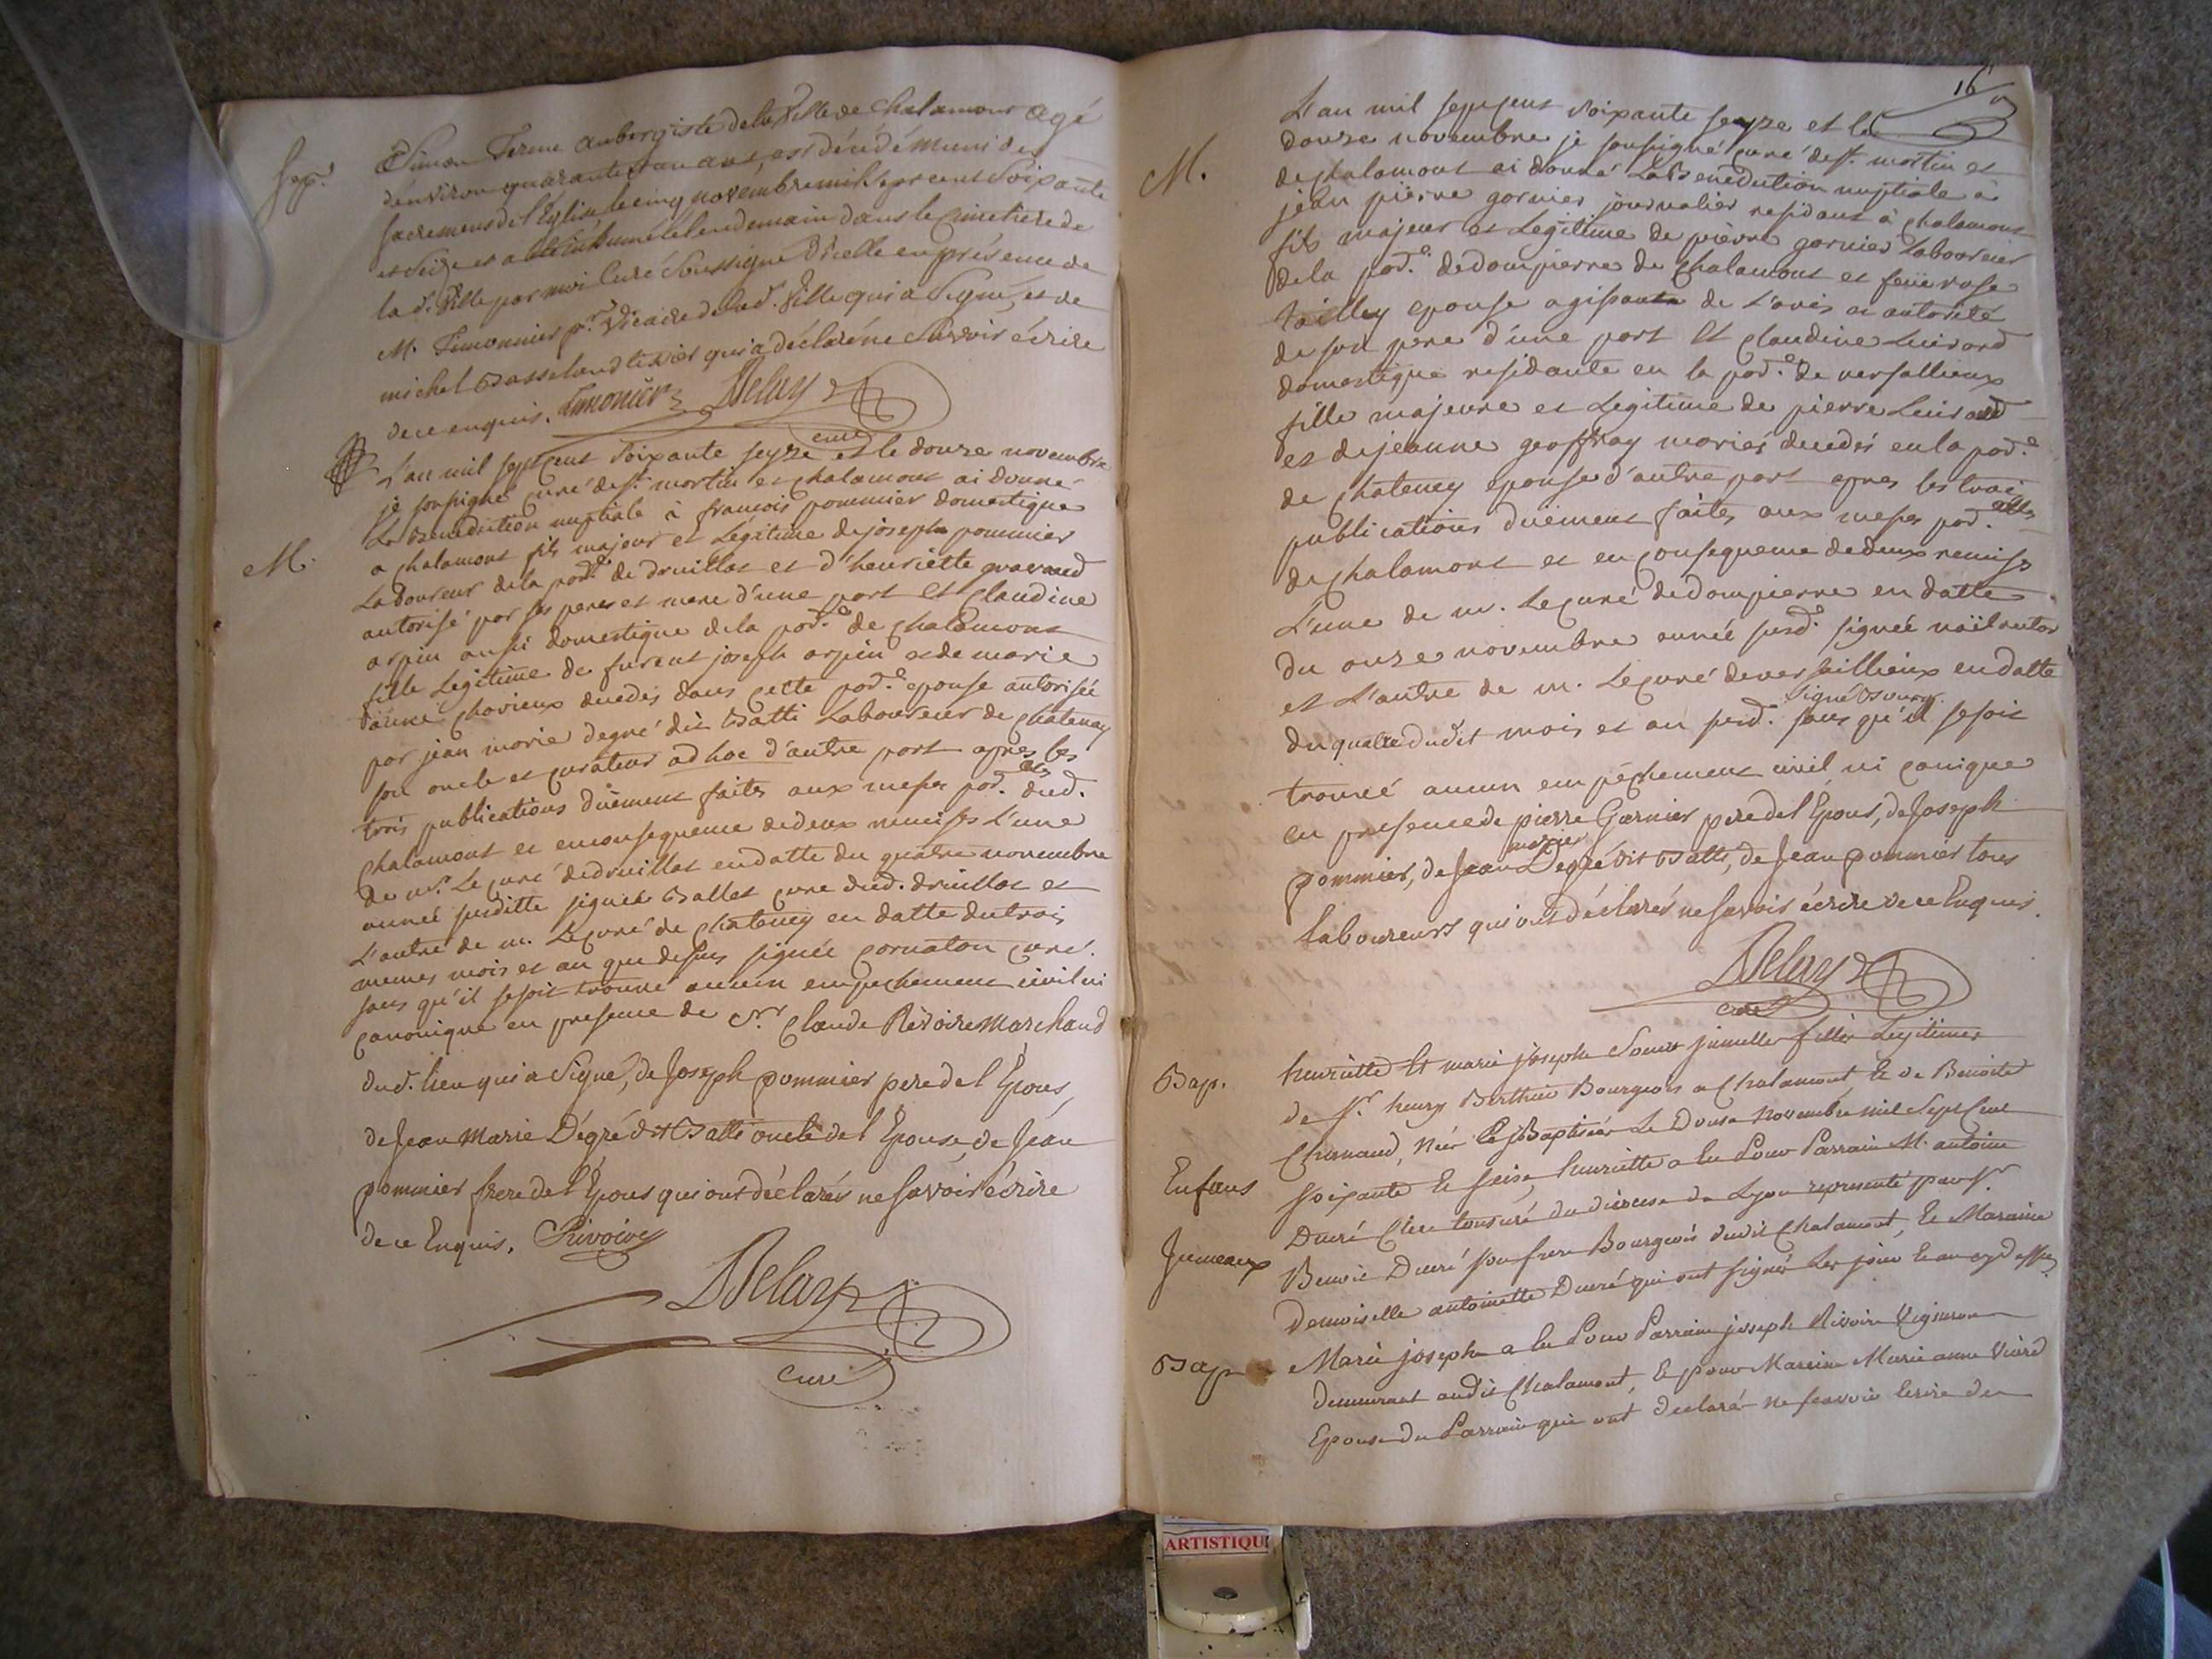 Sep.r
Simon Ferme aubergiste de la Ville de Chalamont agé
d'environ quarante un ans, est décédé muni des
sacremens de l'Eglise le cinq novembre mil sept cent soixante
et seize et a été inhumé le lendemain dans le cimetiere de
la d. Ville par moi Curé soussigné d'icelle en présence de
M. Timonnier p.r Vicaire de lad. Ville qui a signé, et de
michel Basseland tixier qui a déclaré ne savoir écrire
de ce enquis. Timonier Delay
curé
L'an mil sept cent soixante seyze et le douze novembre
je soussigné curé de st. martin et chalamont ai donné
M.
La Benediction nuptiale à francois pommier domestique
a chalamont fils majeur et Légitime de joseph pommier
Laboureur de la par.e de druillat et d'henriette
autorisé par ses peres et mere d'une part Et Claudine
arpin aussi domestique de la par.e de chalamont
fille Legitime de furent joseph arpin et de marie
chovieux decedés dans cette par.e epouse autorisée
par jean marie degré dit Batti Laboureur de chatenay
son oncle et curateur ad hoc d'autre part apres les
trois publications düement faites aux messes par.les dud.
chalamont et en consequence de deux remises L'une
de m.r Le curé de druillat en datte du quatre novembre
année susditte signée Ballet curé dud. druillat et
L'autre de m. Le curé de chateney en datte du trois
memes mois et an que dessus signée cornaton curé.
sans qu'il se soit trouvé aucun empechement civil ni
canonique en presence de Sr. Claude Revoire Marchand
dud. lieu qui a signé, de Joseph pommier pere de l'Epoux,
de Jean Marie Dégré dit Batti oncle de l'Epouse, de Jean
pommier frere de l'Epoux qui ont déclarés ne savoir écrire
de ce Enquis. Rivoire
Delay
curé
16
L'an mil sept cent soixante seyze et le
douze novembre je soussigné curé de st. martin et
M.
de chalamont ai donné La Benediction nuptiale à
jean pierre garnier journalier residant à chalamont
fils majeur et Legitime de pierre garnier Laboureur
de la par.e de dompierre de chalamont et feüe rose
epouse agissante de L'avis et autorité
de son pere d'une part Et claudine Luirard
domestique residante en la par.e de versallieux
fille majeure et Legitime de pierre Luirard
et de jeanne geoffray mariés decedés en la par.e
de chateney epouse d'autre part apres les trois
publications düement faites aux messes par.les
de chalamont et en consequence de deux remises
L'une de m. Le curé de dompierre en datte
du onze novembre année susd.e signée
et L'autre de m. Le curé de versaillieux en datte
signé
du quatre dudit mois et an susd. sans qu'il se soit
trouvé aucun empéchement civil ni canique
en presence de pierre Garnier pere de l'Epoux, de Joseph
marie
pommier, de Jean Degré dit Batti, de Jean pommier tous
laboureurs qui ont déclarés ne savoir écrire de ce Enquis.
Delay
curé
Bap.
henriette Et marie joseph Soeurs jumelles filles Legitimes
de Sr. henry Berthier Bourgeois a Chalamont, Et de Benoite
Charnaud, Nées Et Baptisées Le Douze Novembre mil Sept Cent
Enfans
soixante Et seize, henriette a Eu Pour Parrain M. antoine
Ducré Clerc tonsuré du diocese de Lyon representé par Sr.
Jumeaux
Benoit Ducré son frere Bourgeois dudit Chalamont, Et Maraine
Demoiselle antoinette Ducré qui ont signés Les jour Et an cy dessus
Bap
Marie joseph a Eu Pour Parrain joseph Rivoire Vigneron
demeurant audit Chalamont, Et pour Maraine Marie anne Viard
Epouse du Parrain qui ont declaré ne scavoir Ecrire de
ARTISTIQU